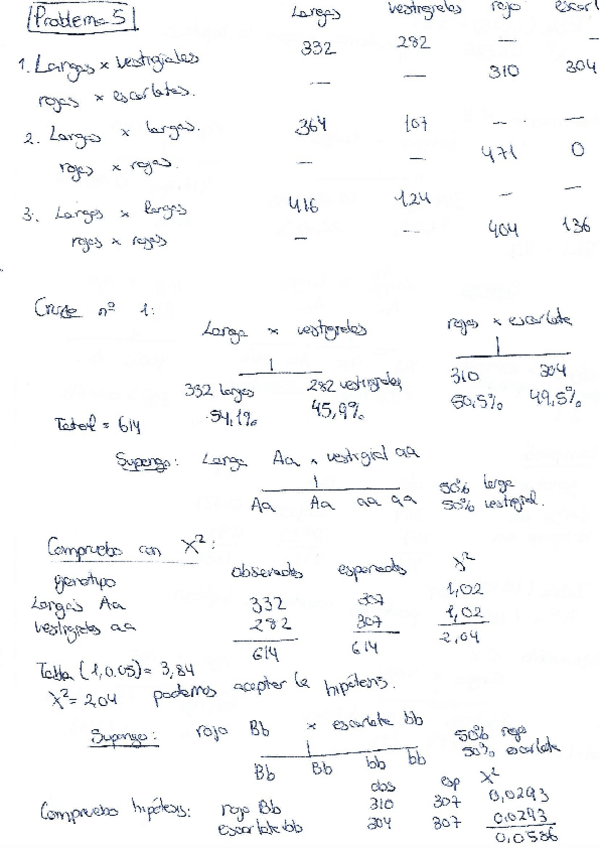 Problema 5
Largas vestigiales rojo escarl
332 282 — —
1. Largas x vestigiales
— — 310 304
rojas x escarlatas.
2. Largas x largas. 364 107 — —
rojas x rojas. — — 471 0
3. Largas x largas 416 124 — —
rojas x rojas — — 404 136
Cruce nº 1:
Larga x vestigiales rojas x escarlata
332 largas 282 vestigiales 310 304
54,1% 45,9% 50,5% 49,5%
Total = 614
Supongo: Larga Aa x vestigial aa 50% larga
Aa Aa aa aa 50% vestigial.
Compruebo con X²:
genotipo observados esperados X²
Largas Aa 332 307 1,02
vestigiales aa 282 307 1,02
614 614 2,04
Tabla (1, 0.05) = 3,84
X² = 2,04 podemos aceptar la hipótesis.
Supongo: rojo Bb x escarlata bb 50% rojo
50% escarlata
Bb Bb bb bb
obs esp X²
Compruebo hipótesis: rojo Bb 310 307 0,0293
escarlata bb 304 307 0,0293
0,0586